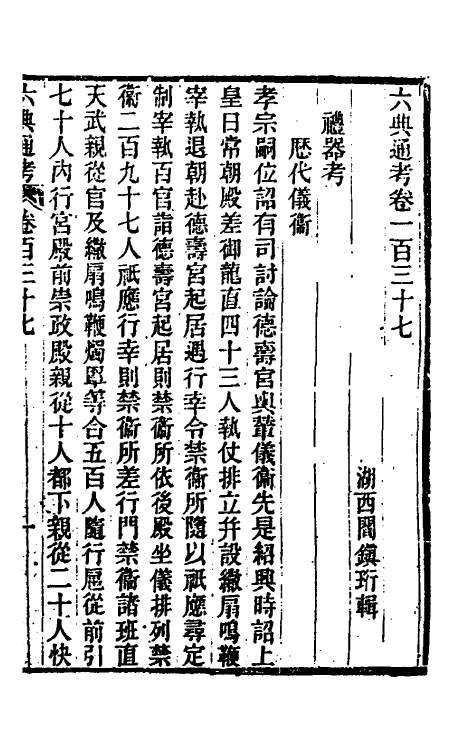 六典通考卷一百三十七
湖西閻鎮珩輯
禮器考
歷代儀衞
孝宗嗣位詔有司討論德壽宮輿輦儀衞先是紹興時詔上
皇日常朝殿差御龍直四十三人執仗排立幷設繖扇鳴鞭
宰執退朝赴德壽宮起居遇行幸令禁衞所隨以祇應尋定
制宰執百官詣德壽宮起居則禁衞所依後殿坐儀排列禁
衞二百九十七人祇應行幸則禁衞所差行門禁衞諸班直
天武親從官及繖扇鳴鞭燭罩等合五百人隨行扈從前引
七十人內行宮殿前崇政殿親從十人都下親從二十人快
六典通考 卷百三十七 一